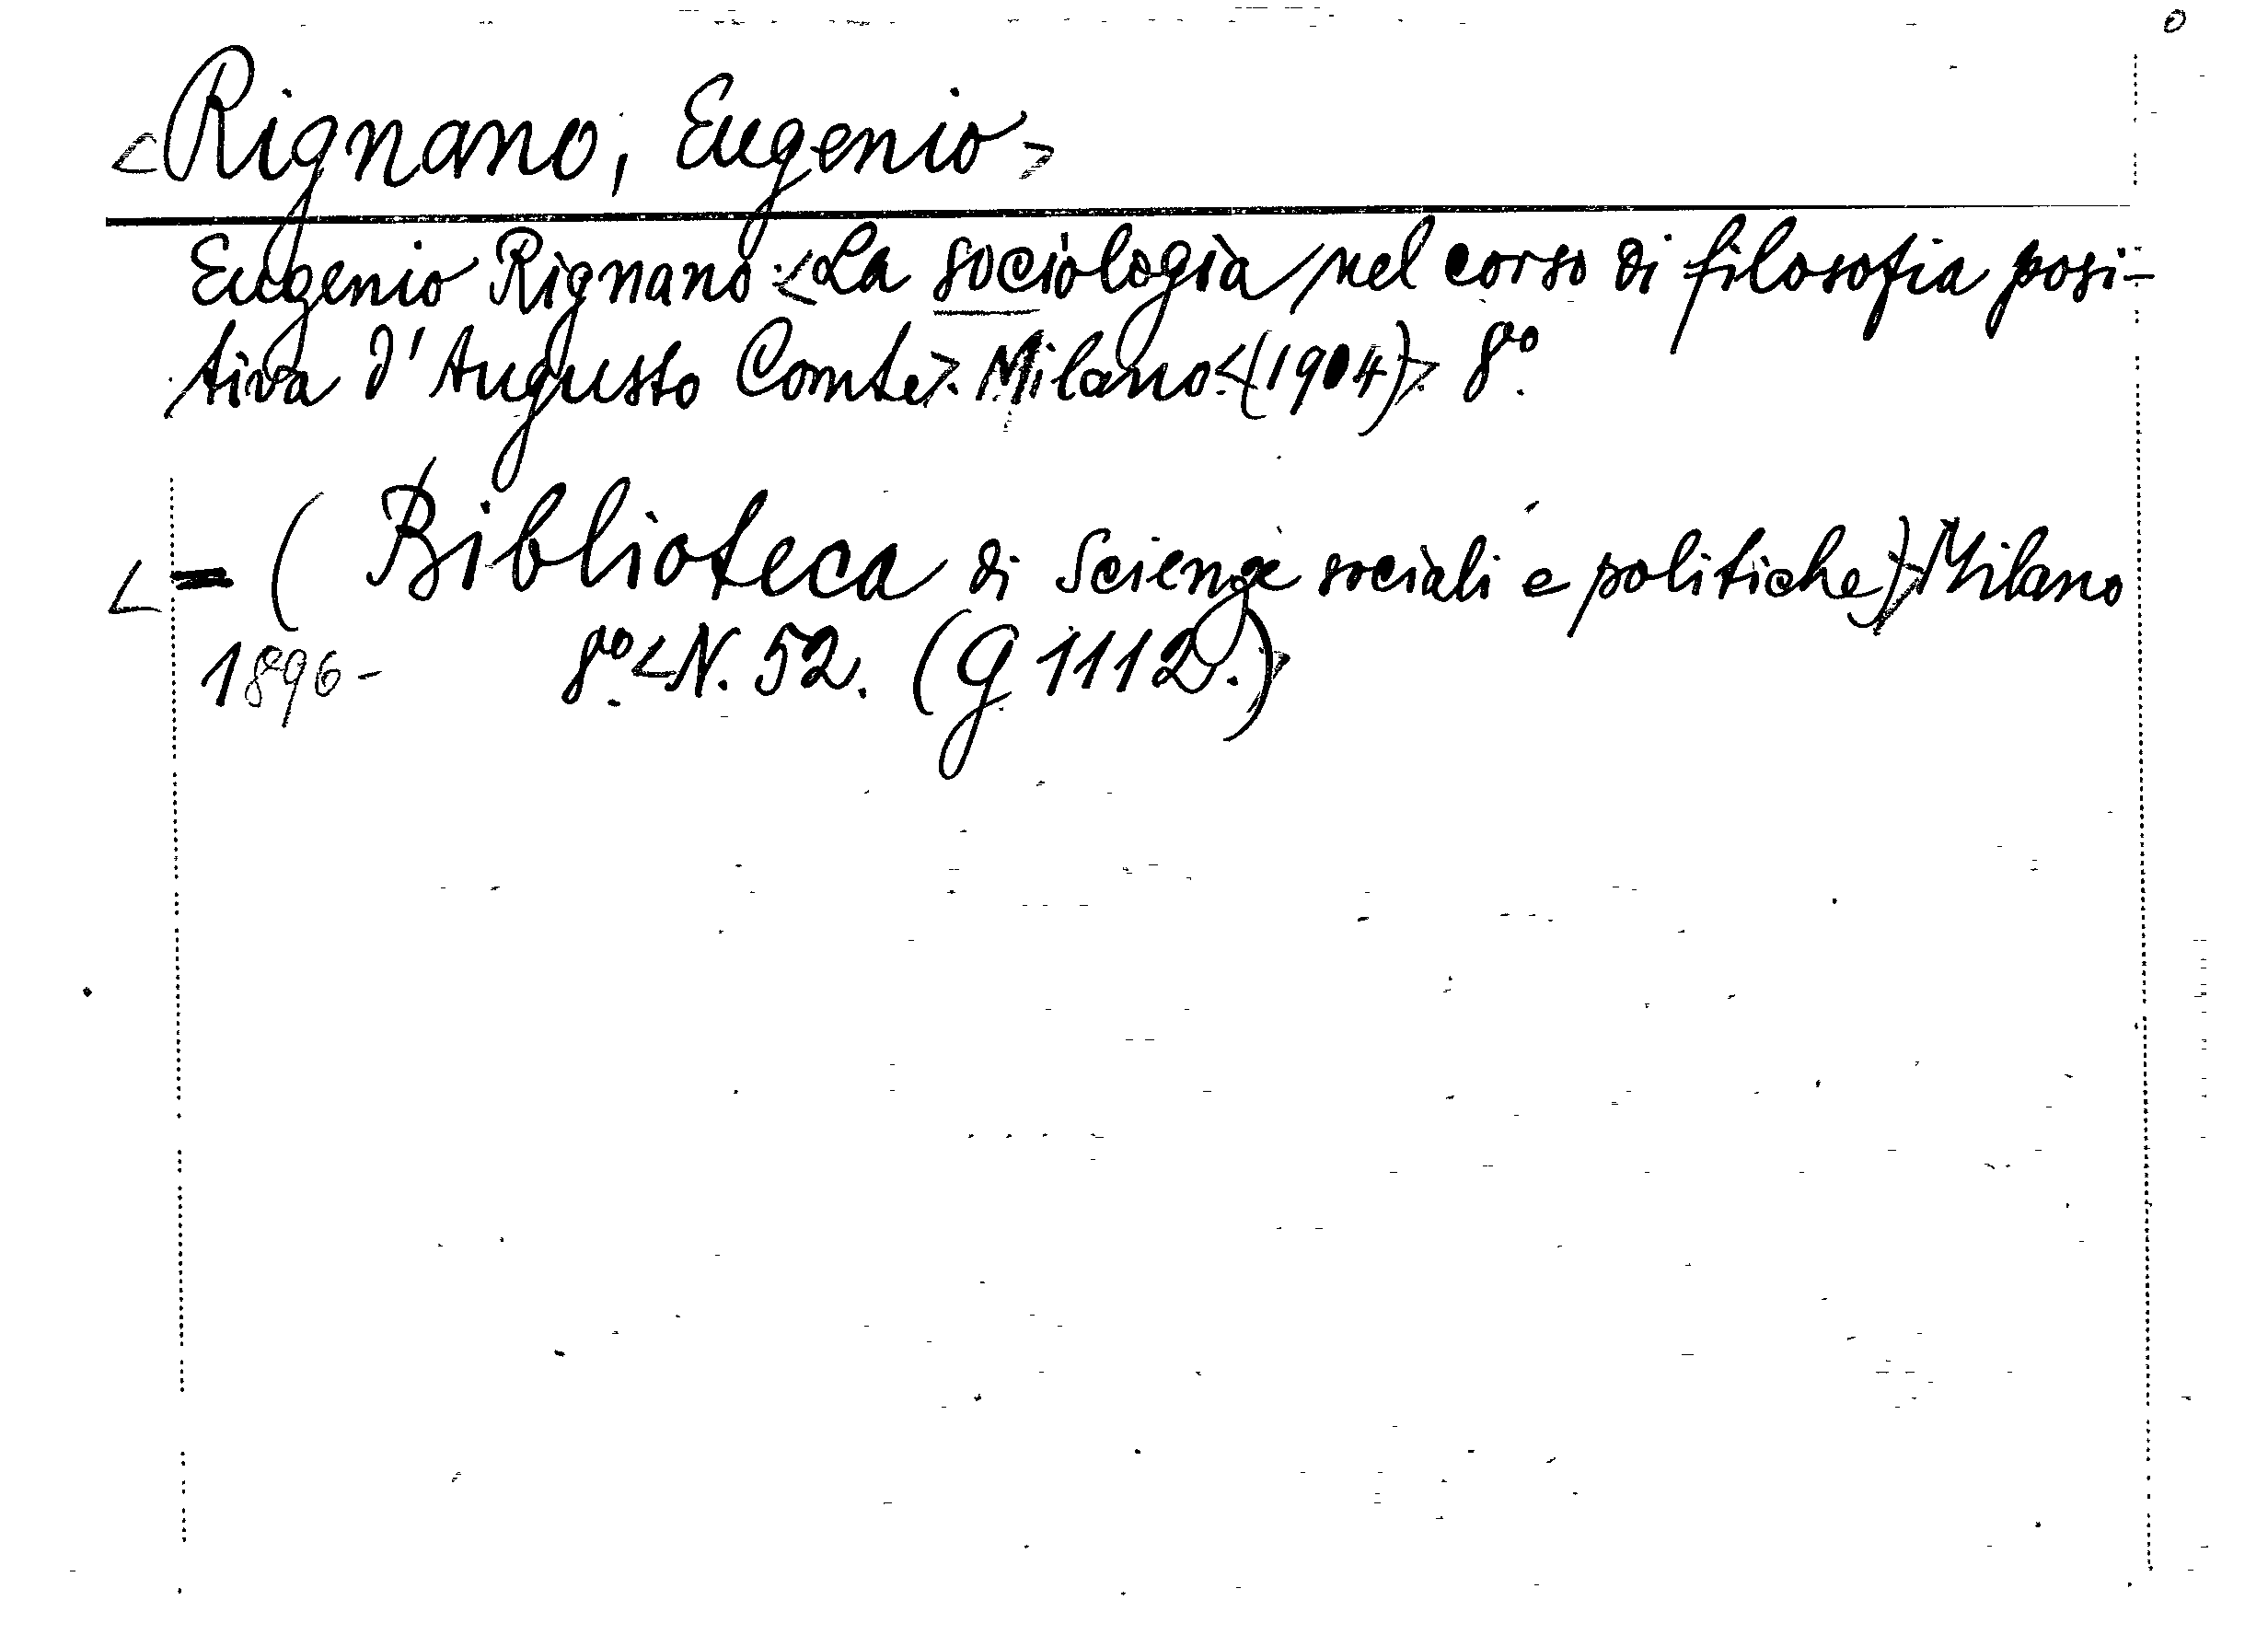 <Rignano, Eugenio>
Eugenio Rignano: <La sociologia nel corso di filosofia posi-
tiva d'Augusto Comte>. Milano. <(1904)>. 8º.
<= (Biblioteca di Scienze sociali e politiche)> Milano
1896- 8º. <N. 52. (G 1112.)>